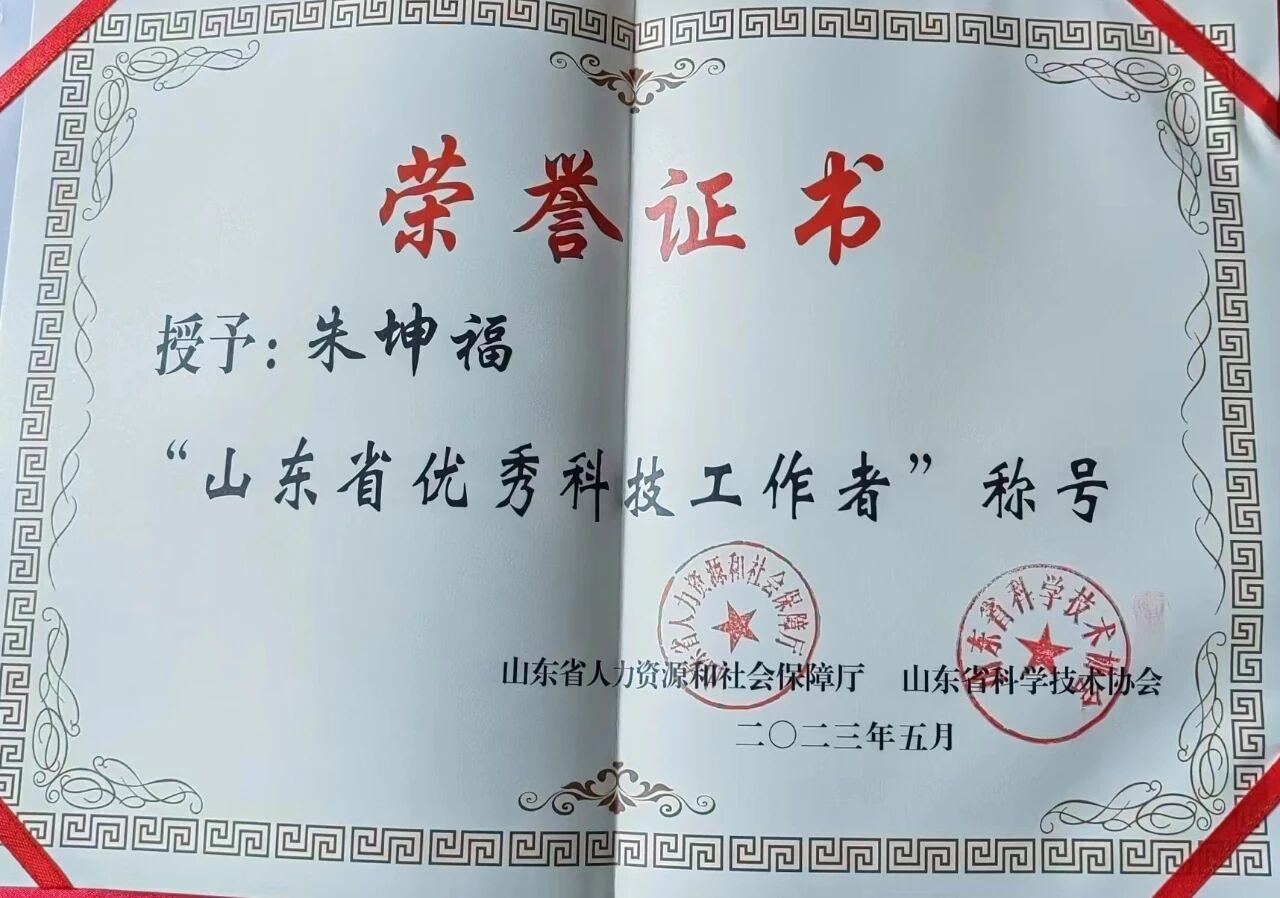 荣誉证书
授予：朱坤福
“山东省优秀科技工作者”称号
山东省人力资源和社会保障厅
山东省科学技术协会
山东省人力资源和社会保障厅 山东省科学技术协会
二〇二三年五月